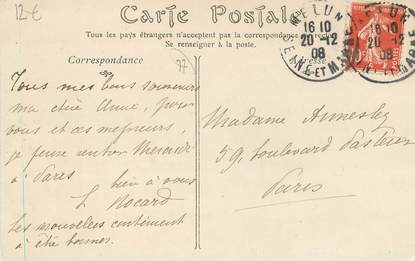 12€
Carte Postale
Tous les pays étrangers n'acceptent pas la correspondance
Se renseigner à la poste.
MELUN
16 10
20-12
08
SEINE-ET-MARNE
MELUN
16 10
20-12
08
SEINE-ET-MARNE
10
Correspondance
77
Tous mes bons souvenirs
ma chère amie, pour
vous et ces messieurs,
je pense rentrer Mercredi
à Paris
bien à vous
L Nocard
Les nouvelles continuent
à être bonnes.
Madame Annesley
59, boulevard Pasteur
Paris